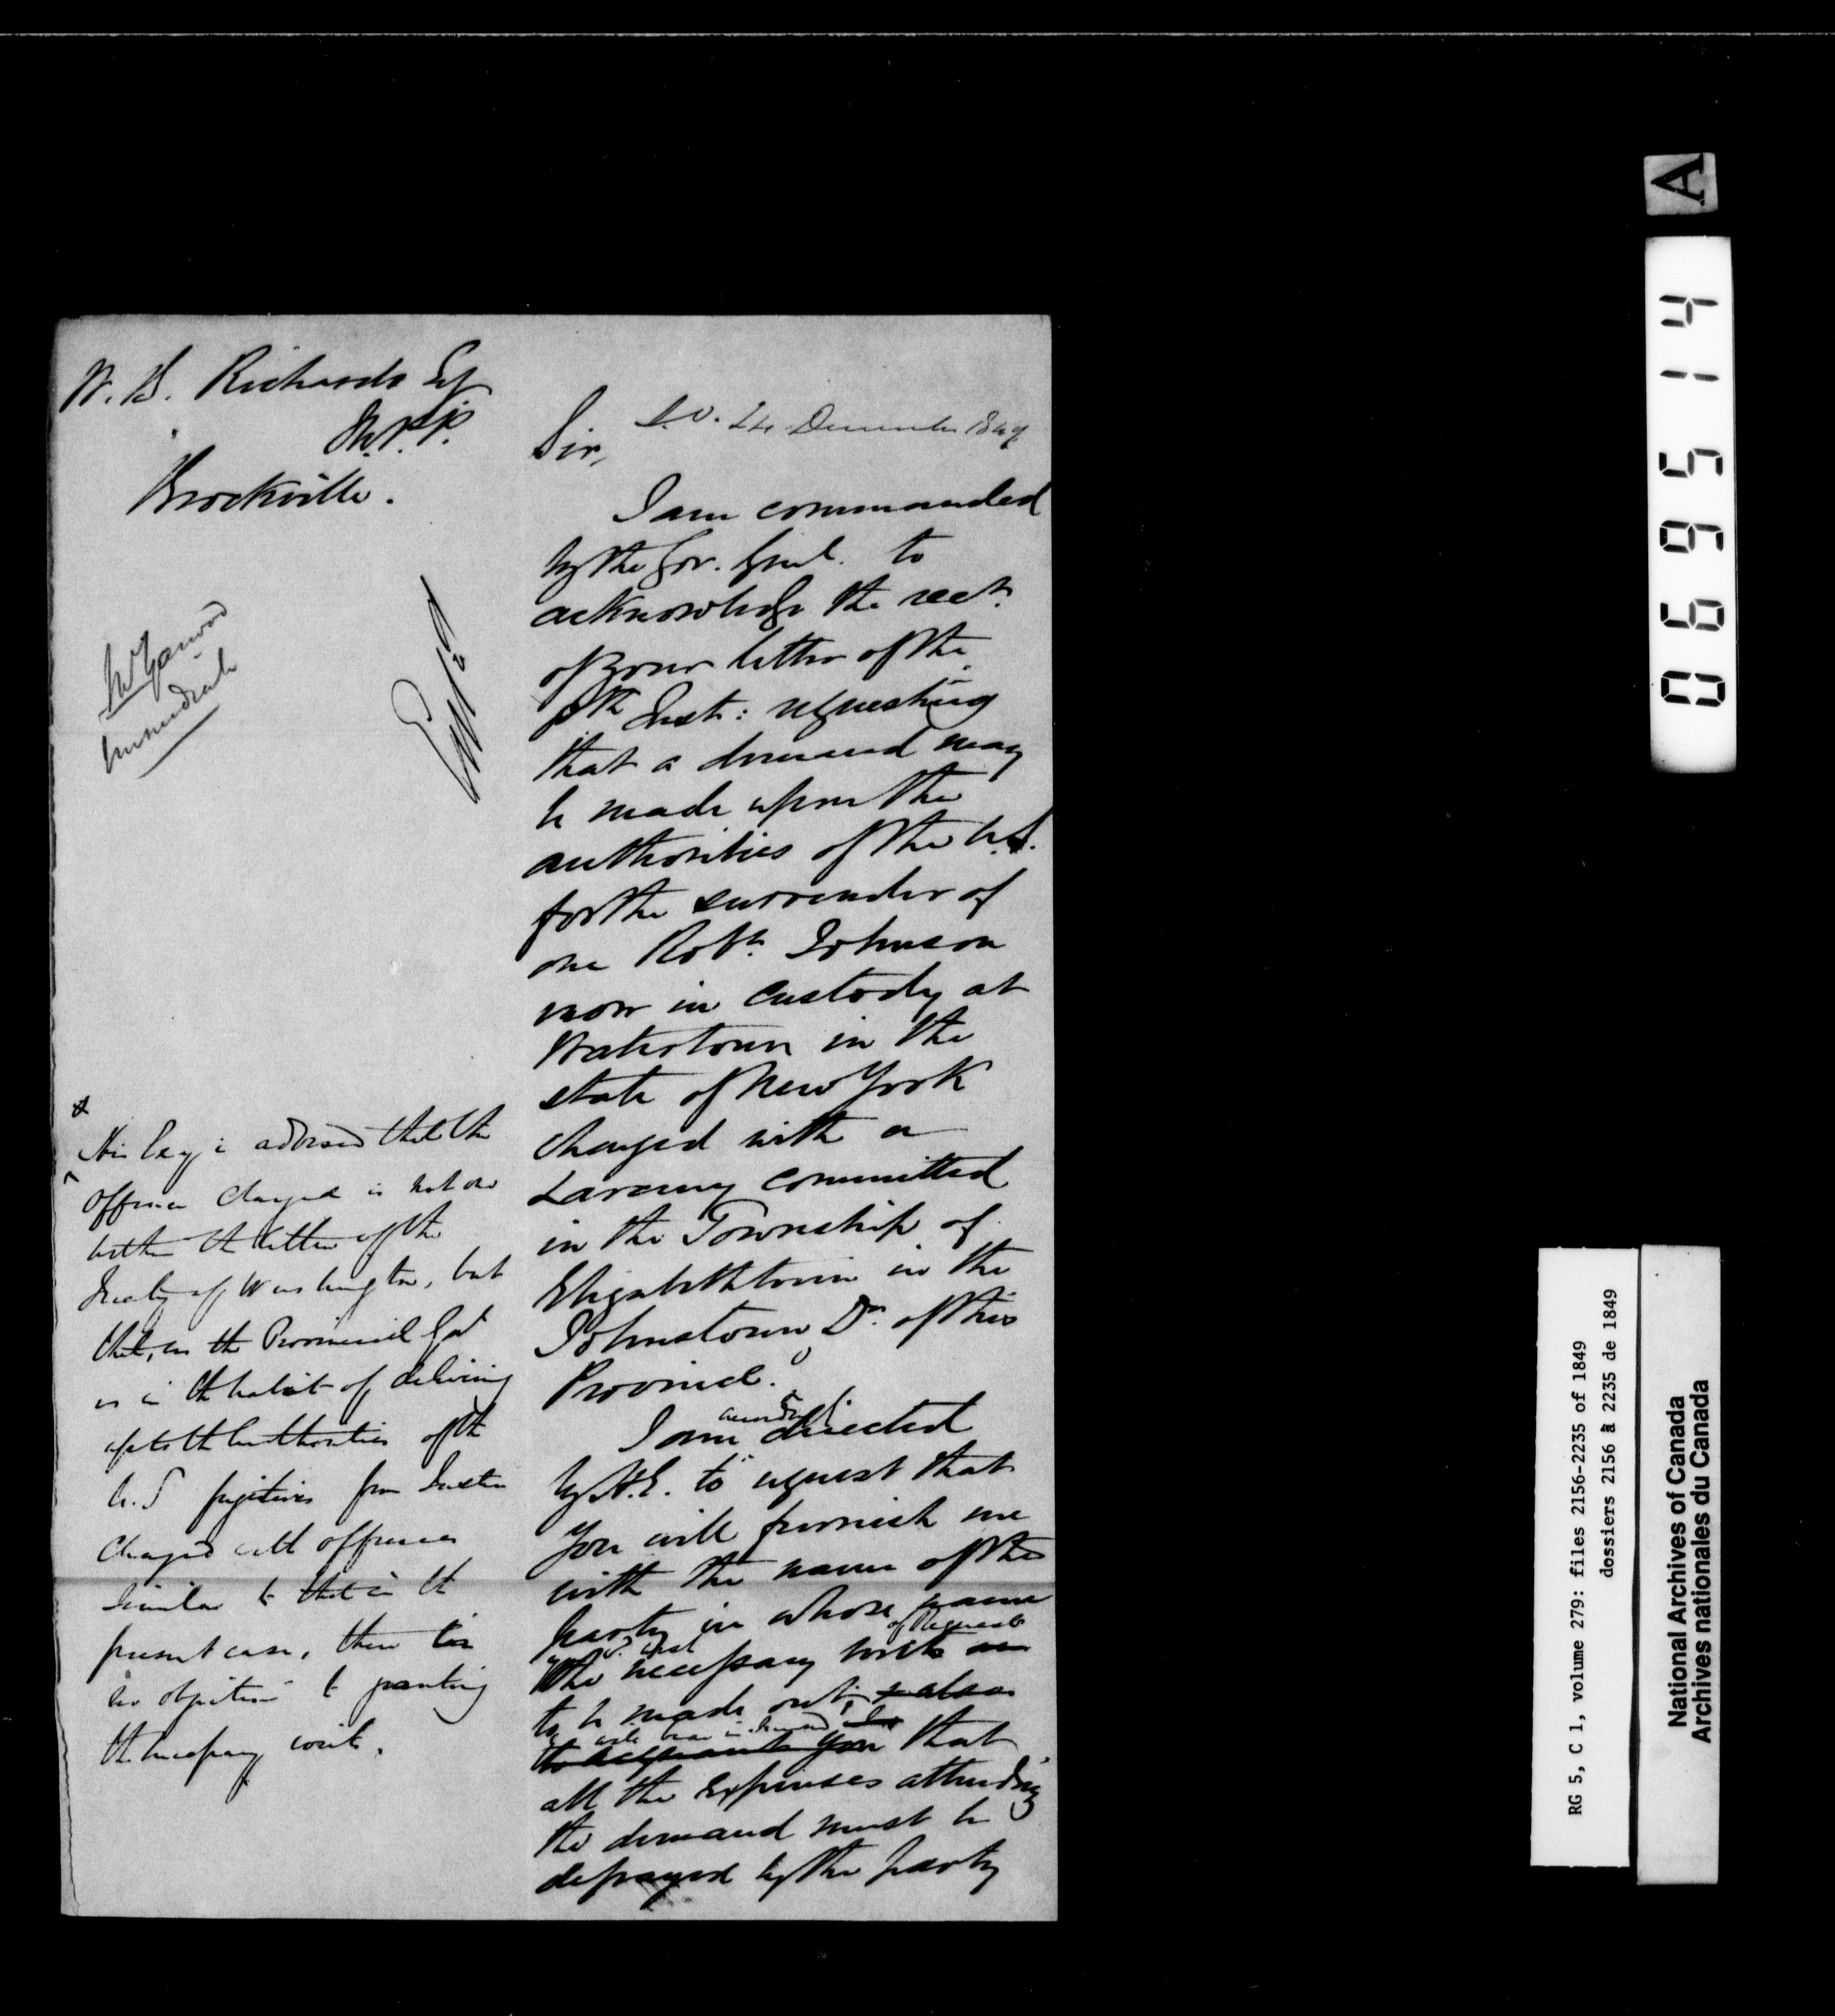 W. B. Richards Esq
M.P.P.
Brockville.
Mr Garwood
immediate
Engd
S.O. 24 December 1849
Sir,
I am commanded
by the Gov. Genl. to
acknowledge the rect.
of your letter of the
8th Inst: requesting
that a demand may
be made upon the
authorities of the U.S.
for the surrender of
one Robt. Johnson
now in custody at
Watertown in the
state of New York
charged with a
Larceny committed
in the Township of
Elizabethtown in the
Johnstown Dn. of this
Province.
I am accordingly directed
by H.E. to request that
you will furnish me
with the name of the
party in whose name
the necessary writs of Request are
to be made out, & also
to acquaint you that
you will bear in mind
all the expenses attending
the demand must be
defrayed by the party
His Exy is advised that the
offence charged is not one
within the letter of the
Treaty of Washington, but
that, as the Provincial Govt
is in the habit of delivering
up to the authorities of the
U.S fugitives from Justice
charged with offences
similar to that in the
present case, there is
no objection to granting
the necessary writ.
A
069514
RG 5, C 1, volume 279: files 2156-2235 of 1849
dossiers 2156 à 2235 de 1849
National Archives of Canada
Archives nationales du Canada